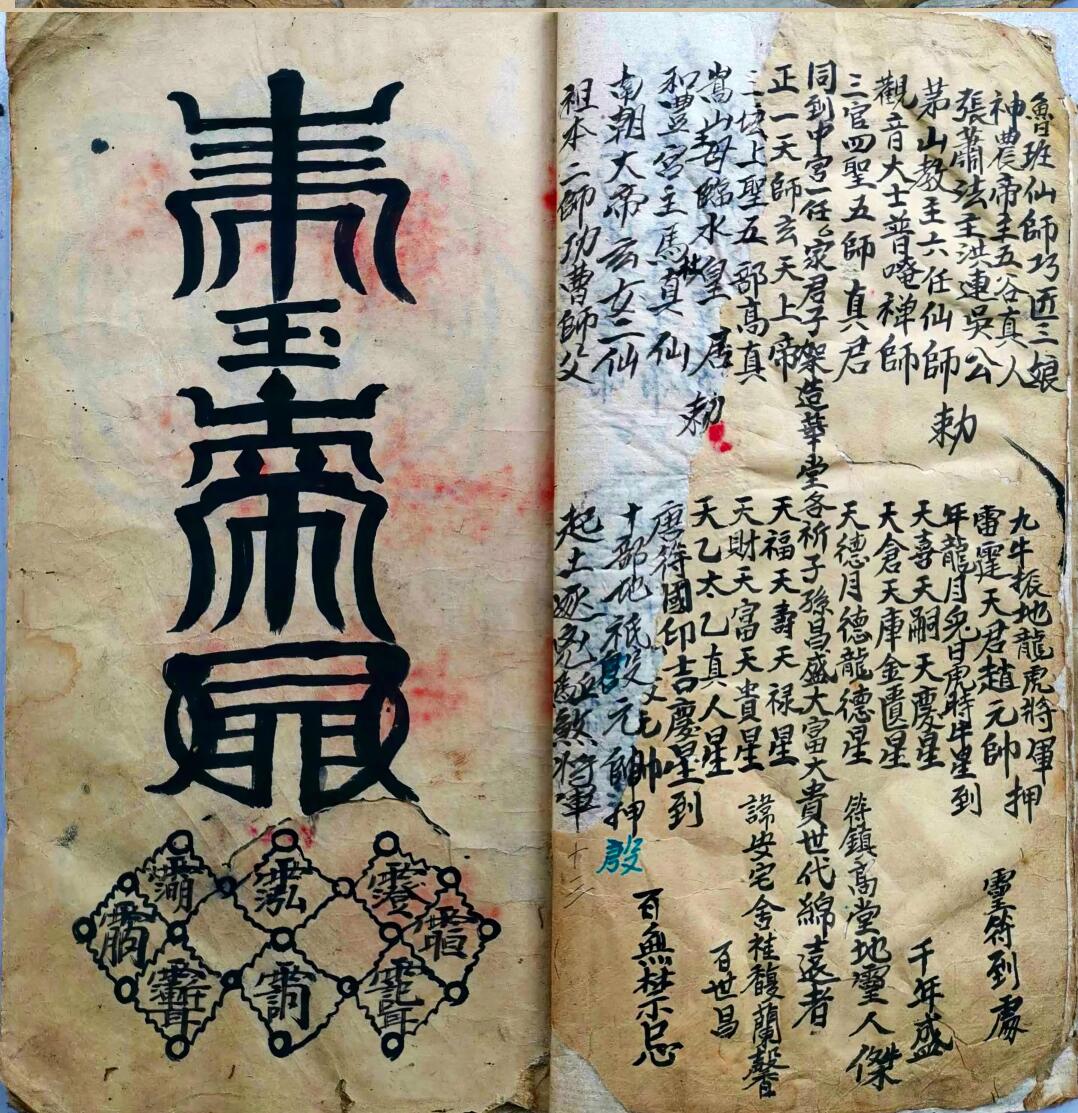 魯班仙師巧匠三娘
神農帝主五谷真人
張蕭法主洪連吳公
茅山教主六任仙師
敕
觀音大士普唵禅師
三官四聖五師真君
同到中宫一任乙家君子架造華堂各祈子孫昌盛大富大貴世代綿遠者
正一天師玄天上帝
三坛上聖五部高真
嵩山臨水皇居
敕
和豊宮主馬真仙
南朝大帝玄女二仙
祖本二師功曹師父
九牛振地龍虎將軍押
雷霆天君趙元帥
年龍月兔日虎時牛星到
天喜天嗣天慶星
天倉天庫金匱星
天德月德龍德星
天福天壽天禄星
天財天富天貴星
天乙太乙真人星
唐符國印吉慶星到
十部地祇殷元帥押
殷
起土逐煞將軍
靈符到處
千年盛
符鎮高堂地靈人傑
諱安宅舍桂馥蘭馨
百世昌
百無禁忌
玉
帝